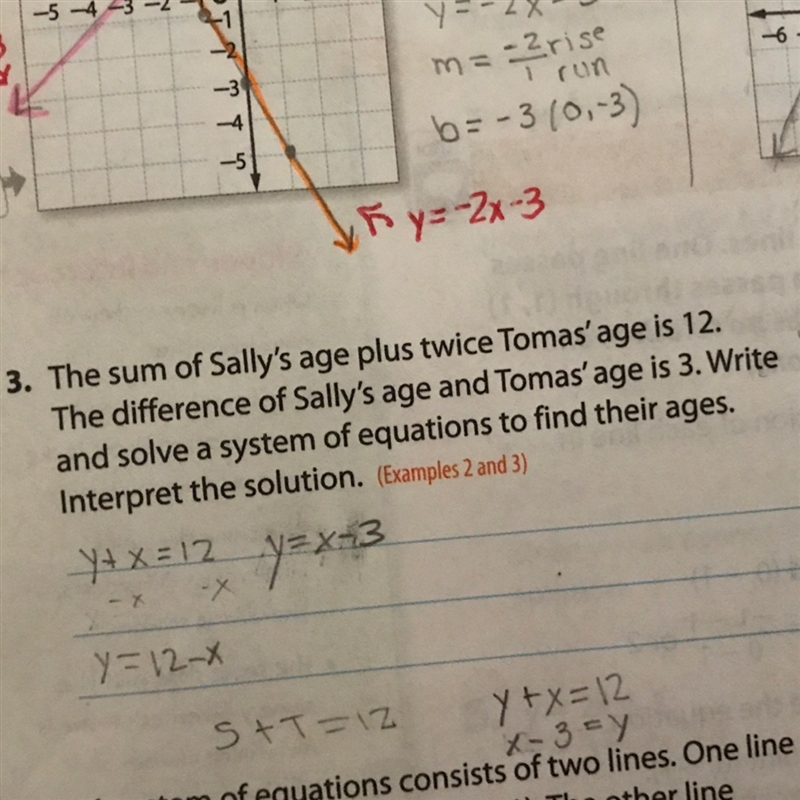 -5 -4 -3 -2
-1
-2
-3
-4
-5
m = -2/1 rise run
b = -3 (0,-3)
y=-2x-3
-6
3. The sum of Sally's age plus twice Tomas' age is 12.
The difference of Sally's age and Tomas' age is 3. Write
and solve a system of equations to find their ages.
Interpret the solution. (Examples 2 and 3)
y+x=12 y=x-3
-x -x
y=12-x
S+T=12
y+x=12
x-3=y
of equations consists of two lines. One line
The other line